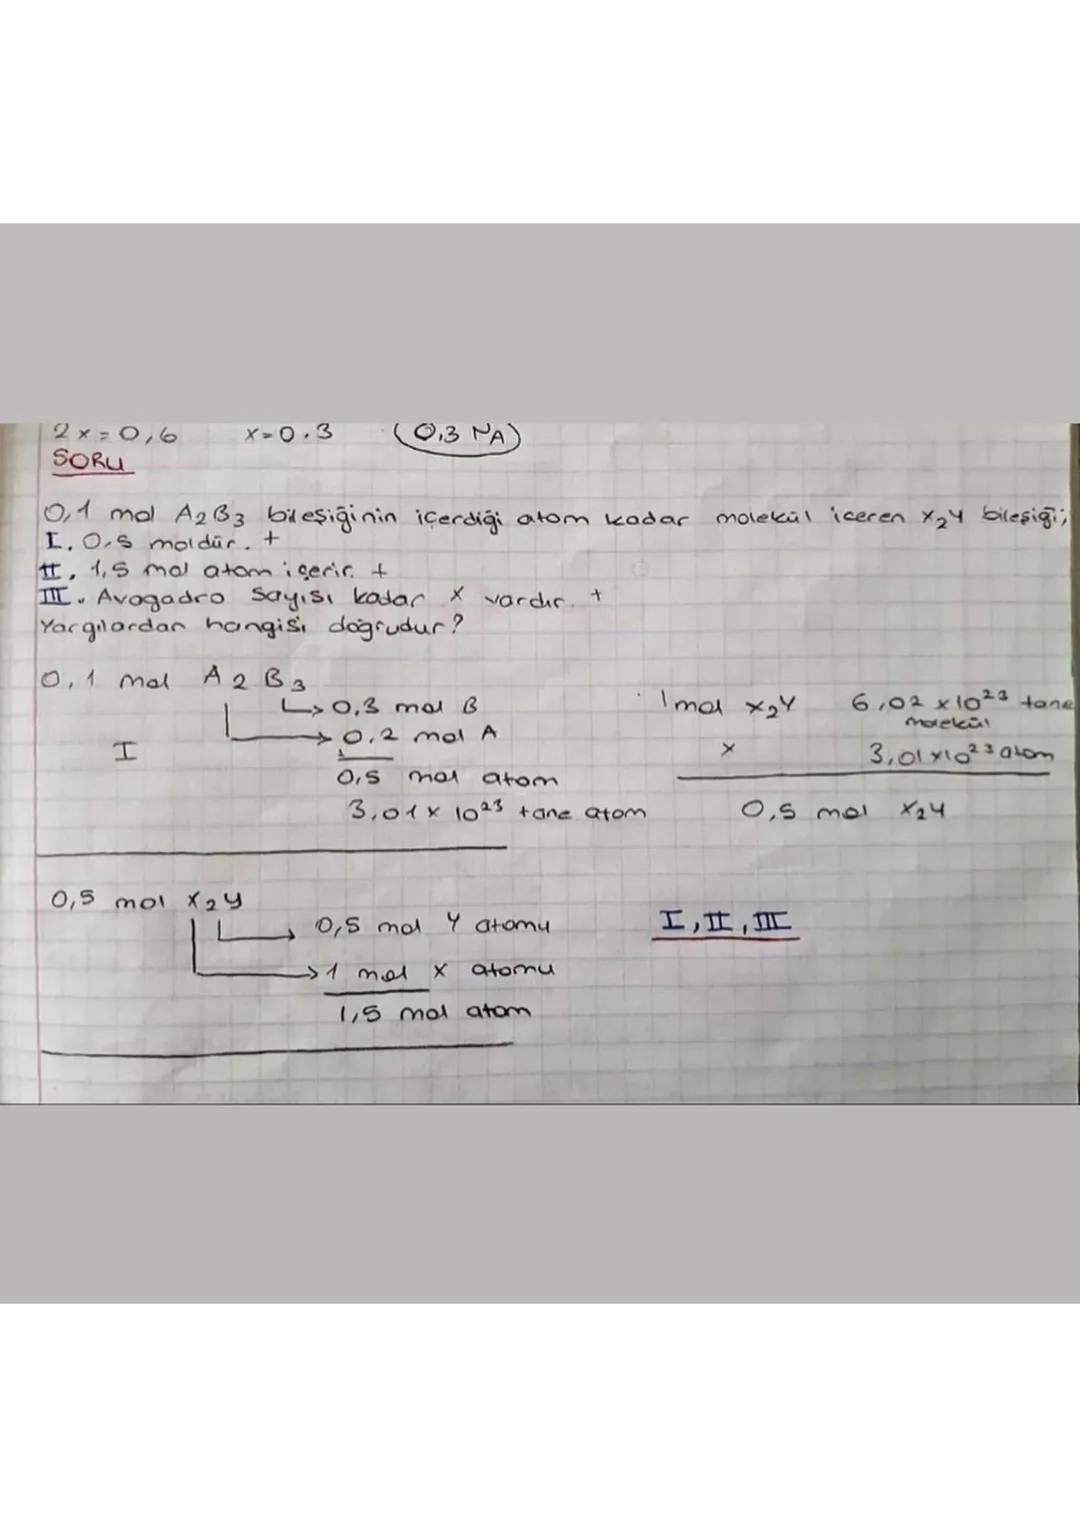 2x=0,6 x=0.3 0,3 NA
SORU
0,1 mol A2B3 bileşiğinin içerdiği atom kadar molekül iceren X2Y bileşiği;
I. 0.5 moldür. +
II. 1,5 mol atom içerir. +
III. Avogadro sayısı kadar X vardır. +
Yargılardan hangisi doğrudur?
0,1 mol A2B3
0,3 mol B
0,2 mol A
I
0,5 mol atom
3,01x10²³ tane atom
1 mol X2Y 6,02x10²³ tane
molekül
x 3,01x10²³ atom
0,5 mol X2Y
0,5 mol X2Y
0,5 mol Y atomu
1 mol X atomu
1,5 mol atom
I, II, III